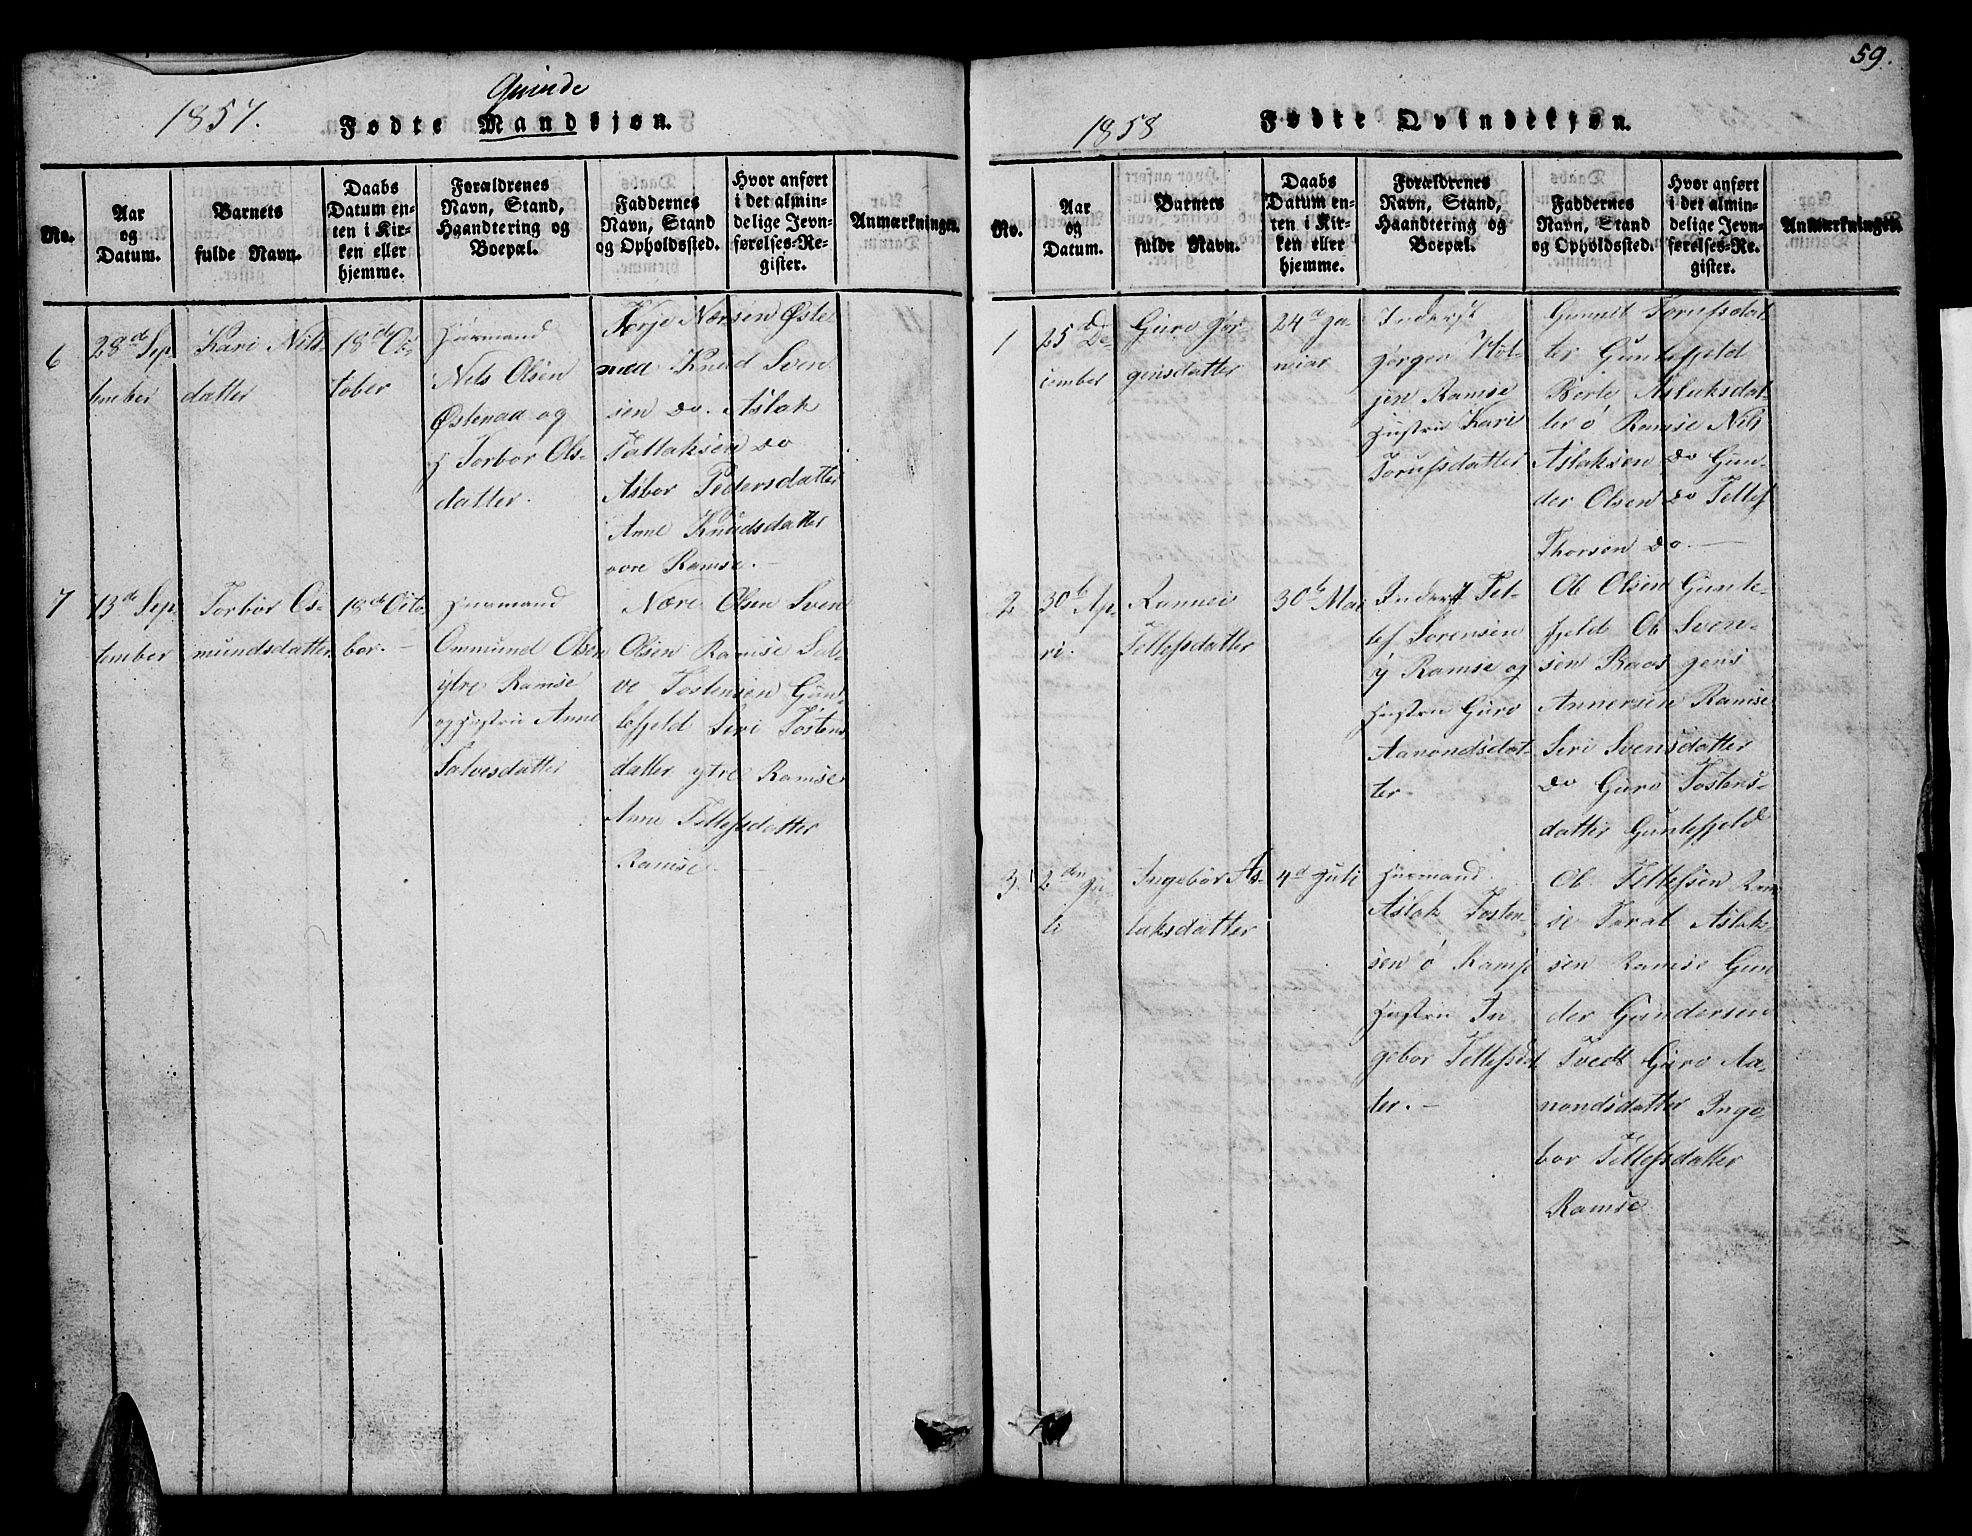 59.
1857.
Qvinde
Fødte Mandkjøn.
No.
Aar
og
Datum.
Barnets
fulde Navn.
Daabs
Datum en-
ten i Kir-
ken eller
hjemme.
Forældrenes
Navn, Stand,
Haandtering og
Boepæl.
Faddernes
Navn, Stand
og Opholdssted.
Hvor anført
i det almin-
delige Jevn-
førelses-Re-
gister.
Anmærkninger.
6
28de Sep
tember
Kari Nils
datter
18de Oc
tober
Huusmand
Nils Olsen
Østenaa og
H Torbor Ols-
datter.
Terje Nersen Øste
naa Knud Sven
sen do. Aslak
Tallaksen do
Asbor Pedersdatter
Anne Knudsdatter
øvre Ramse.
7
13de Sep
tember
Torbor Os-
mundsdatter
18de Octo
ber.
Huusmand
Ommund Olsen
ytre Ramse
og Hustru Anne
Salvesdatter
Nere Olsen Sven
Olsen Ramse Sal-
ve Tostensen Gun
lefjeld Siri Tostens
datter ytre Ramse
Anne Tellefsdatter
Ramse
1858
Fødte Qvindekjøn.
No.
Aar
og
Datum.
Barnets
fulde Navn.
Daabs
Datum en-
ten i Kir-
ken eller
hjemme.
Forældrenes
Navn, Stand,
Haandtering og
Boepæl.
Faddernes
Navn, Stand
og Opholdssted.
Hvor anført
i det almin-
delige Jevn-
førelses-Re-
gister.
Anmærkninger.
1
25d De-
cember
Guro Jør-
gensdatter
24d Ja-
nuar
Inderst
Jørgen
Ramse
Hustru Kari
Torufsdatter
Gunnil Torufsdat
ter Guntefjeld
Berte Aslaksdat-
ter ø Ramse Nils
Aslaksen do Gun-
der Olsen do Tellef
Thorsen do.
2
30t Ap
ri.
Rannei
Tellefsdatter
30t Mai
Inderst Tel-
lef Sørensen
y Ramse og
Hustru Guro
Aanondsdat-
ter.
Ob Olsen Gunte-
fjeld Ob Sven-
sen
Annersen Ramse
Siri Svensdatter
do Guro Tostens-
datter Guntefjeld
3.
2den Ju
li
Ingebor As-
laksdatter
4d Juli
Huusmand
Aslak Tosten-
sen ø Rams
Hustru In
gebor Tellefsdat
ter.
Ob Tellefsen Ram
se Toral Aslak-
sen Ramse Gun
der Gundersen
Tvedt Guro Aa-
nondsdatter Inge-
bor Tellefsdatter
Ramse